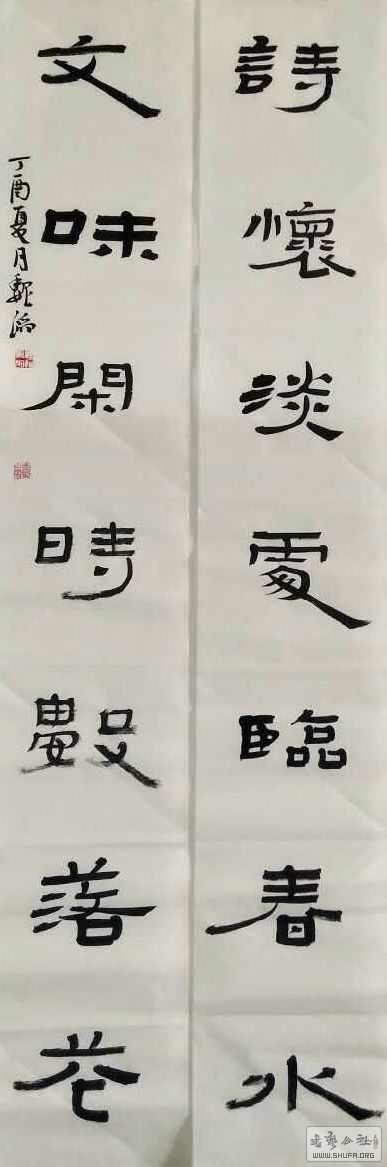 詩懷淡處臨春水
文味閑時數落花
丁酉夏月
WWW.SHUFA.ORG